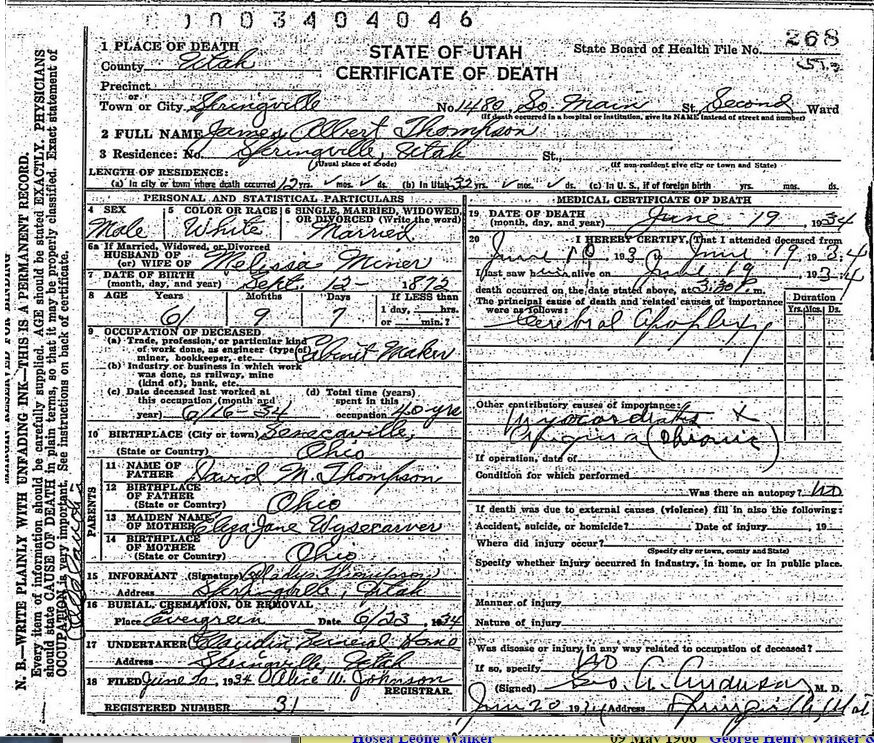 01003404046
1 PLACE OF DEATH
STATE OF UTAH
State Board of Health File No. 268
County Utah
CERTIFICATE OF DEATH
Precinct
or
Town or City Springville No. 1480 So. Main St. Second Ward
(If death occurred in a hospital or institution, give its NAME instead of street and number)
2 FULL NAME James Albert Thompson
3 Residence: No. Springville, Utah St.,
(Usual place of abode) (If non-resident give city or town and State)
LENGTH OF RESIDENCE:
(a) In city or town where death occurred 12 yrs. mos. ds. (b) In Utah 32 yrs. mos. ds. (c) In U. S., if of foreign birth yrs. mos. ds.
PERSONAL AND STATISTICAL PARTICULARS
4 SEX 5 COLOR OR RACE 6 SINGLE, MARRIED, WIDOWED, OR DIVORCED (Write the word)
Male White Married
6a If Married, Widowed, or Divorced
HUSBAND OF
(or) WIFE OF Melissa Miner
7 DATE OF BIRTH
(month, day, and year) Sept. 12- 1872
8 AGE Years Months Days If LESS than
1 day, hrs.
61 9 7 or min.?
9 OCCUPATION OF DECEASED
(a) Trade, profession, or particular kind
of work done, as engineer (type of)
miner, bookkeeper, etc. Cabinet Maker
(b) Industry or business in which work
was done, as railway, mine
(kind of); bank, etc.
(c) Date deceased last worked at
this occupation (month and
year) 6/16-34
(d) Total time (years)
spent in this
occupation 40 yrs
10 BIRTHPLACE (City or town) Senecaville,
(State or Country) Ohio
PARENTS
11 NAME OF
FATHER David M. Thompson
12 BIRTHPLACE
OF FATHER
(State or Country) Ohio
13 MAIDEN NAME
OF MOTHER Eliza Jane Wysecarver
14 BIRTHPLACE
OF MOTHER
(State or Country) Ohio
15 INFORMANT (Signature) Gladys Thompson
Address Springville, Utah
16 BURIAL, CREMATION, OR REMOVAL
Place Evergreen Date 6/23, 1934
17 UNDERTAKER Claudin Funeral Home
Address Springville, Utah
18 FILED June 20, 1934 Alice W. Johnson
REGISTRAR.
REGISTERED NUMBER 31
MEDICAL CERTIFICATE OF DEATH
19 DATE OF DEATH
(month, day, and year) June 19, 1934
20 I HEREBY CERTIFY, That I attended deceased from
June 10, 193 , June 19, 1934
I last saw him alive on June 19, 1934
death occurred on the date stated above, at 3:30 P. m.
The principal cause of death and related causes of importance
were as follows:
Duration
Yrs. Mos. Ds.
Cerebral Apoplexy
Other contributory causes of importance:
Myocarditis X
Angina (Chronic)
If operation, date of
Condition for which performed
Was there an autopsy? No
If death was due to external causes (violence) fill in also the following:
Accident, suicide, or homicide? Date of injury , 19
Where did injury occur?
(Specify city or town, county and State)
Specify whether injury occurred in industry, in home, or in public place.
Manner of injury
Nature of injury
Was disease or injury in any way related to occupation of deceased?
If so, specify No
(Signed) Geo. A. Anderson M. D.
June 20 1934 Address Springville, Utah
N. B.—WRITE PLAINLY WITH UNFADING INK—THIS IS A PERMANENT RECORD.
Every item of information should be carefully supplied. AGE should be stated EXACTLY. PHYSICIANS
should state CAUSE OF DEATH in plain terms, so that it may be properly classified. Exact statement of
OCCUPATION is very important. See instructions on back of certificate.
Hosea Leone Walker 09 May 1906 George Henry Walker &